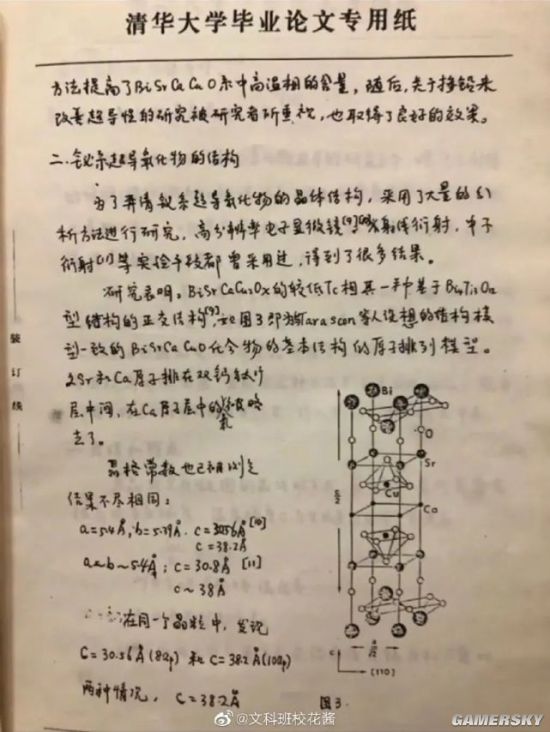 清华大学毕业论文专用纸
方法提高了BiSrCaCuO系中高温相的含量，随后，关于掺铅来
改善超导性的研究被研究者所重视，也取得了良好的效果。
二.铋系超导氧化物的结构
为了弄清铋系超导氧化物的晶体结构，采用了大量的分
析方法进行研究，高分辨率电子显微镜[9]，X射线衍射，中子
衍射[11]等实验手段都曾采用过，得到了很多结果。
研究表明，BiSrCaCu2Ox的较低Tc相具一种基于Bi4Ti3O12
型结构的正交结构[9]，图3即为Tarascon等人设想的结构模
型一致的BiSrCaCuO化合物的基本结构的原子排列模型。
Sr和Ca原子排在双钙钛矿
层中间，在Ca原子层中的氧被略
去了。
晶格常数也已被测定
结果不尽相同：
a=5.4Å, b=5.39Å. c=30.56Å [10]
c=38.2Å
a~b~5.4Å; c=30.8Å [11]
c~38Å
在同一个晶粒中，发现
C=30.56Å(82p) 和 C=38.2Å(100p)
两种情况，C=38.2Å
Bi
O
Sr
Cu
Ca
c/2
c
a
[110]
图3.
装订线
@文科班校花酱
GAMERSKY